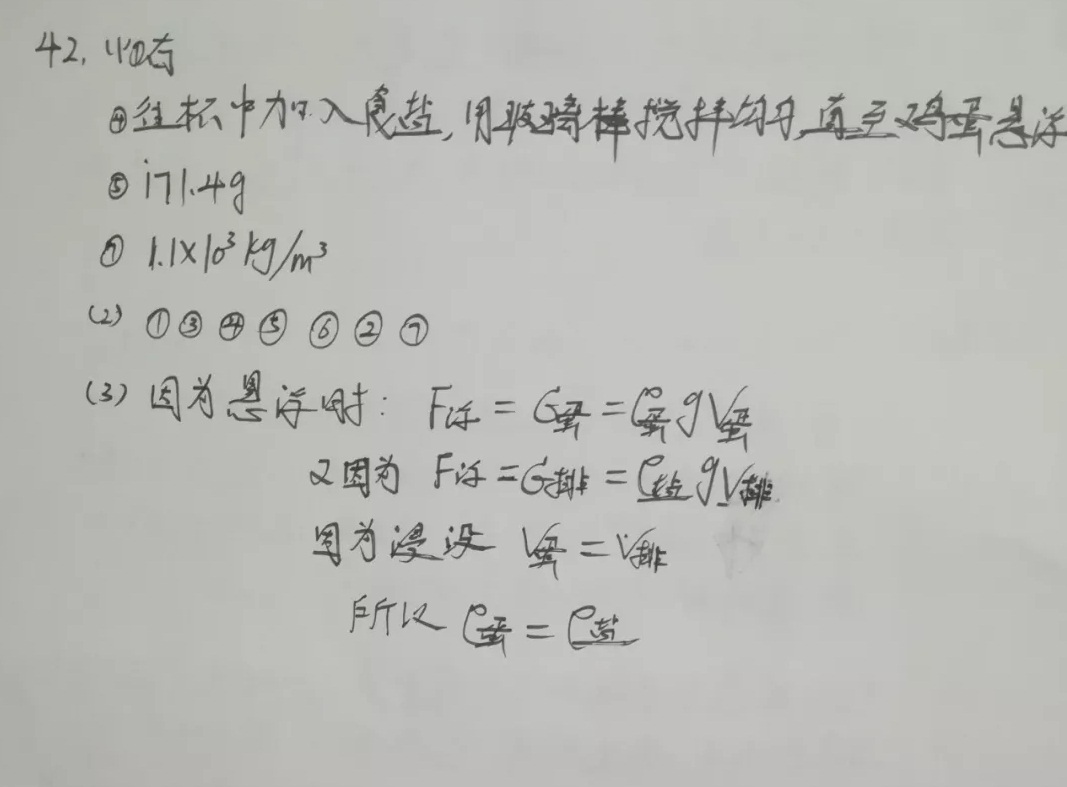 42. (1)①右
④往杯中加入食盐,用玻璃棒搅拌均匀,直至鸡蛋悬浮
⑤ 171.4g
⑦ 1.1×10³kg/m³
(2) ①③④⑤⑥②⑦
(3) 因为悬浮时: F浮=G蛋=ρ蛋gV蛋
又因为 F浮=G排=ρ盐gV排
因为浸没 V蛋=V排
所以 ρ蛋=ρ盐